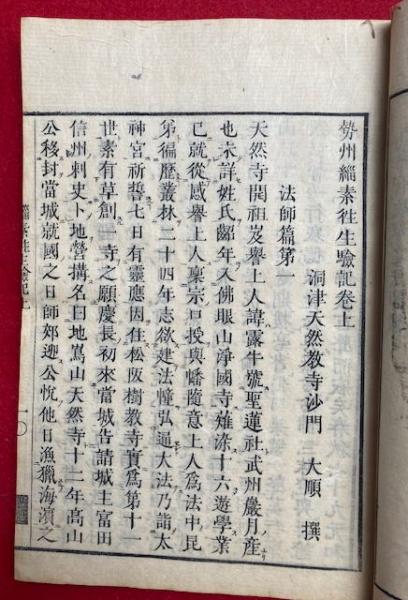 勢州緇素往生驗記卷上
洞津天然教寺沙門　大順　撰
法師篇第一
天然寺開祖岌譽上人諱露牛號聖蓮社武州巖月産
也未詳姓氏齠年入佛眼山淨國寺薙染十六遊學業
已就從感譽上人稟宗戸授與幡隨意上人爲法中昆
弟徧歷叢林二十四年志欲建法幢弘通大法乃詣太
神宮祈誓七日有靈應因住松阪樹教寺實爲第十一
世素有草創一寺之願慶長初來當城告請城主富田
信州刺史卜地營搆名曰地嶌山天然寺十二年髙山
公移封當城就國之日師郊迎公忻他日漁獵海濵之
緇素往生驗記上
一〇